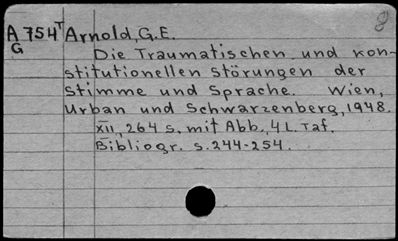 8
A 754 T Arnold, G.E.
G
Die Traumatischen und kon-
stitutionellen Störungen der
Stimme und Sprache. Wien,
Urban und Schwarzenberg, 1948.
XII, 264 s. mit Abb., 4 L. Taf.
Bibliogr. s. 244-254.